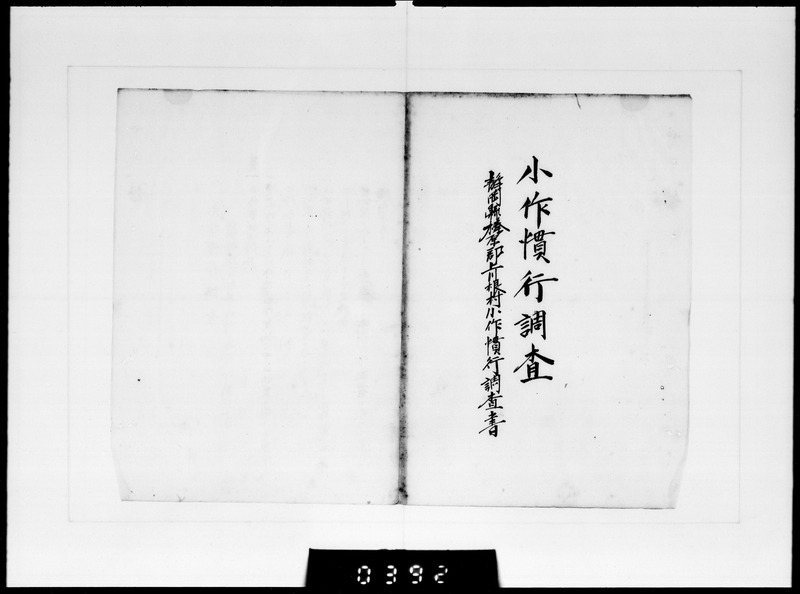 小作慣行調査
静岡縣榛原郡上川根村小作慣行調査書
0392